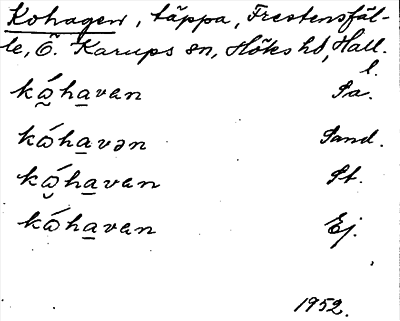 Kohagen, täppa, Frestensfäl-
le, Ö. Karups sn, Höks hd, Hall.
l.
kǻ̰ha̲van Sa.
kǻha̲vən Sand.
kǻ̮ha̲van St.
kǻha̲van Ej.
1952.